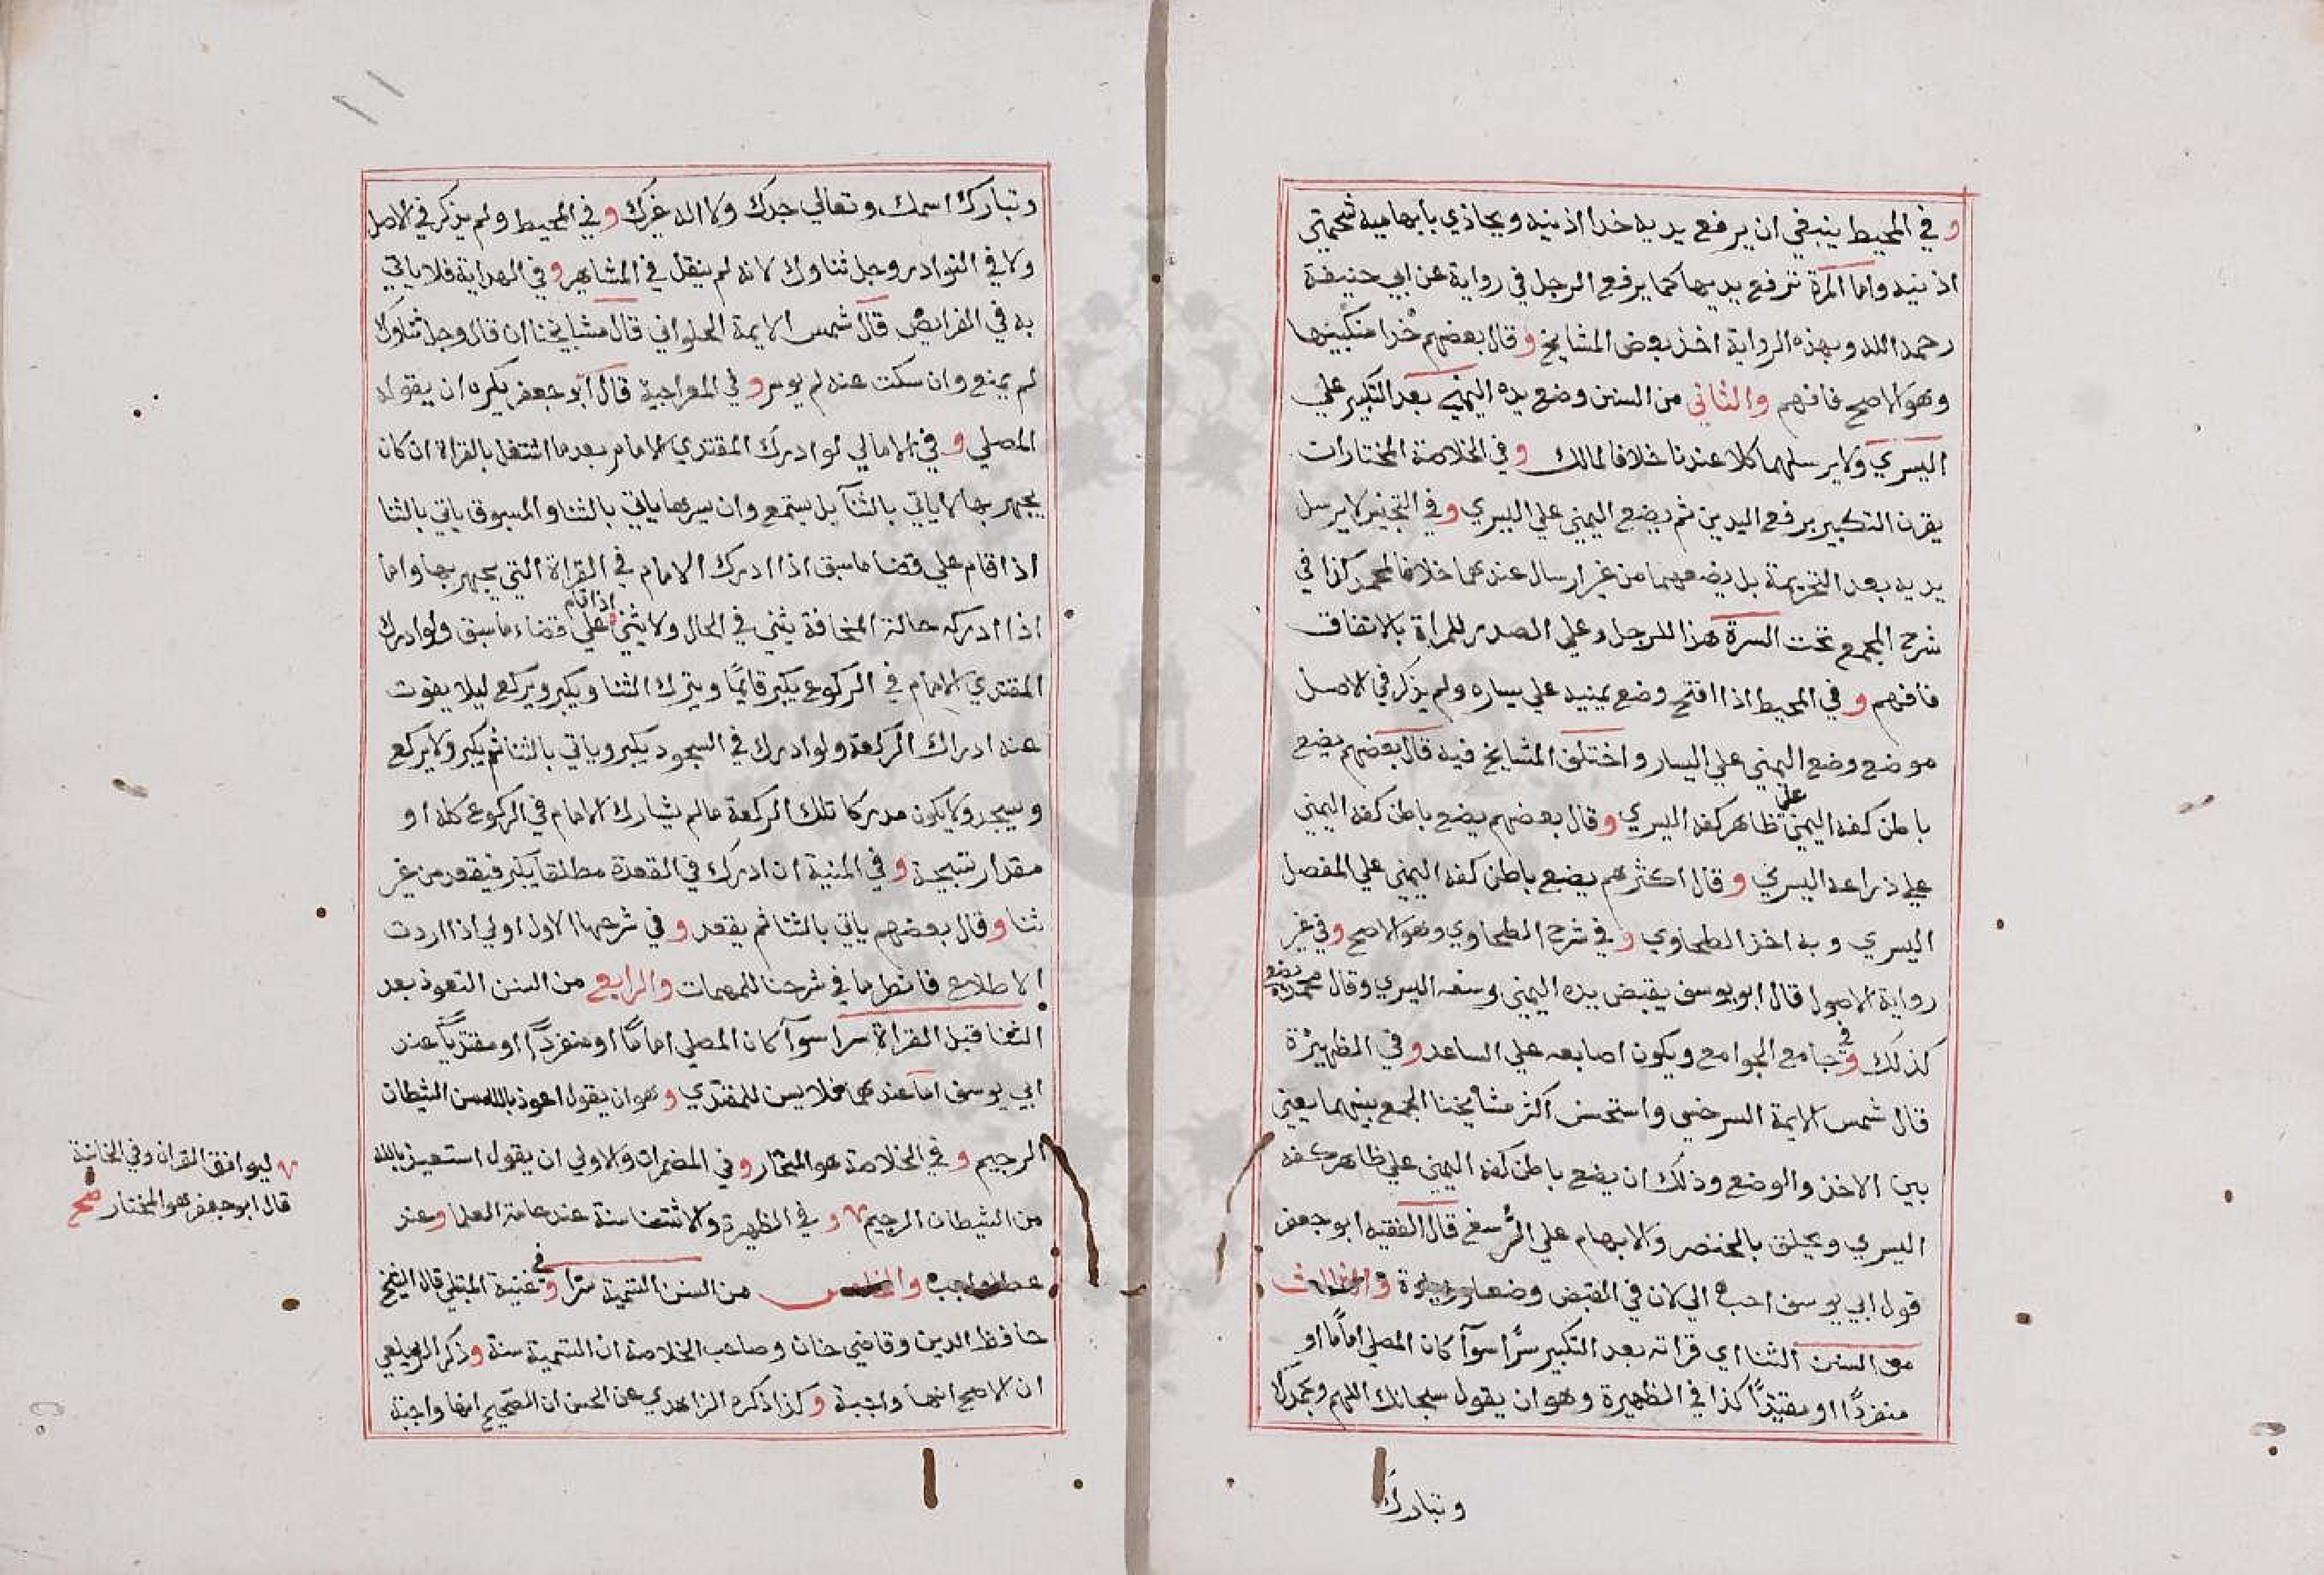 وفي المحيط ينبغي ان يرفع يديه حذا اذنيه ويحاذي بابهاميه شحمتي
اذنيه واما المرة ترفع يديها كما يرفع الرجل في رواية عن ابي حنيفة
رحمه الله وبهذه الرواية اخذ بعض المشايخ وقال بعضهم حذا منكبيها
وهو الاصح فافهم والثاني من السنن وضع يده اليمني بعد التكبير علي
اليسري ولا يرسلهما كلا عندنا خلافا لمالك وفي الخلاصة المختارات
يقرن التكبير برفع اليدين ثم يضع اليمني علي اليسري وفي التجنيس لا يرسل
يديه بعد التحريمة بل يضعهما من غير ارسال عندهما خلافا لمحمد كذا في
شرح المجمع تحت السرة هذا للرجل وعلي الصدر للمراة بالاتفاق
فافهم وفي المحيط اذا افتتح وضع يمينه علي يساره ولم يذكر في الاصل
موضع وضع اليمني علي اليسار واختلف المشايخ فيه قال بعضهم يضع
باطن كفه اليمني علي ظاهر كفه اليسري وقال بعضهم يضع باطن كفه اليمني
علي ذراعه اليسري وقال اكثرهم يضع باطن كفه اليمني علي المفصل
اليسري وبه اخذ الطحاوي وفي شرح الطحاوي وهو الاصح وفي غير
رواية الاصول قال ابو يوسف يقبض بيده اليمني رسغه اليسري وقال محمد يضع
كذلك وفي جامع الجوامع ويكون اصابعه علي الساعد وفي الظهيرة
قال شمس الايمة السرخسي واستحسن اكثر مشايخنا الجمع بينهما يعني
بين الاخذ والوضع وذلك ان يضع باطن كفه اليمني علي ظاهر كفه
اليسري ويحلق بالخنصر والابهام علي الرسغ قال الفقيه ابو جعفر
قول ابي يوسف احب الي لان في القبض وضعا وزيادة والثالث
من السنن الثنا اي قراته بعد التكبير سرًا سوآ كان المصلي امامًا او
منفردًا او مقتديًا كذا في الظهيرة وهو ان يقول سبحانك اللهم وبحمدك
وتبارك
وتبارك اسمك وتعالي جدك ولا اله غيرك وفي المحيط ولم يذكر في الاصل
ولا في النوادر وجل ثناوك لانه لم ينقل في المشاهير وفي الهداية فلا ياتي
به في الفرايض قال شمس الايمة الحلواني قال مشايخنا ان قال وجل ثناوك
لم يمنع وان سكت عنه لم يومر وفي المعراجية قال ابو جعفر يكره ان يقوله
المصلي وفي الامالي لو ادرك المقتدي الامام بعدما اشتغل بالقراة ان كان
يجهر بها لا ياتي بالثنآ بل يستمع وان يسرها ياتي بالثنا والمسبوق ياتي بالثنا
اذا قام علي قضا ما سبق اذا ادرك الامام في القراة التي يجهر بها واما
اذا ادركه حالة المخافة يثني في الحال ولا يثني اذا قام علي قضاء ما سبق ولو ادرك
المقتدي الامام في الركوع يكبر قايمًا ويترك الثنا ويكبر ويركع ليلا يفوت
عنه ادراك الركعة ولو ادرك في السجود يكبر وياتي بالثنا ثم يكبر ولا يركع
ويسجد ولا يكون مدركا تلك الركعة ما لم يشارك الامام في الركوع كله او
مقدار تسبيحة وفي المنية ان ادرك في القعدة مطلقا يكبر فيقعد من غير
ثنا وقال بعضهم ياتي بالثنا ثم يقعد وفي شرحها الاول اولي اذا اردت
الاطلاع فانظر ما في شرحنا للمهمات والرابع من السنن التعوذ بعد
الثنا قبل القراة سرا سوآ كان المصلي امامًا او منفردًا او مقتديًا عند
ابي يوسف اما عندهما فلا يسن للمقتدي وهو ان يقول اعوذ بالله من الشيطان
الرجيم وفي الخلاصة هو المختار وفي المضمرات والاولي ان يقول استعيذ بالله
من الشيطان الرجيم وفي الظهيرة والاثتفا سنة عند عامة العلما وعند
عطا واجبة والخامس من السنن التسمية سرا وفي غنية المبتلي قال الشيخ
حافظ الدين وقاضي خان وصاحب الخلاصة ان التسمية سنة وذكر الزيلعي
ان الاصح انها واجبة وكذا ذكره الزاهدي عن الحسن ان الصحيح انها واجبة
ليوافق القران وفي الخانية
قال ابو جعفر هو المختار صح